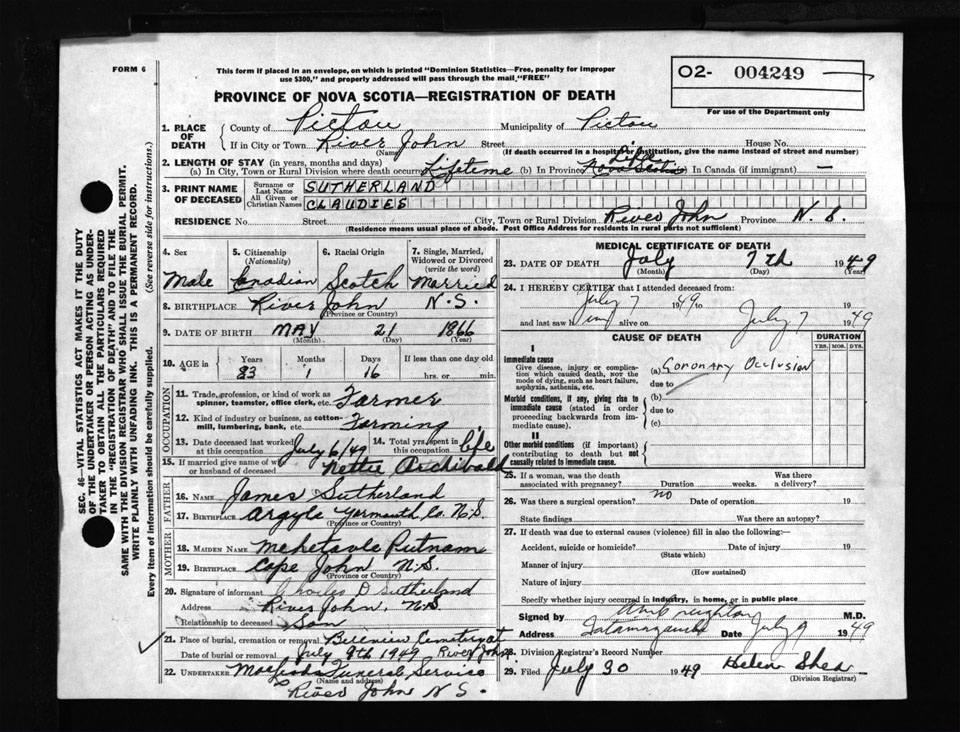 FORM 6
This form if placed in an envelope, on which is printed "Dominion Statistics—Free, penalty for improper
use $300," and properly addressed will pass through the mail, "FREE"
O2- 004249
For use of the Department only
PROVINCE OF NOVA SCOTIA—REGISTRATION OF DEATH
1. PLACE OF DEATH { County of Pictou Municipality of Pictou
If in City or Town River John Street House No.
(Name) (If death occurred in a hospital or institution, give the name instead of street and number)
2. LENGTH OF STAY (in years, months and days)
(a) In City, Town or Rural Division where death occurred Lifetime (b) In Province Life Nova Scotia (c) In Canada (if immigrant) —
3. PRINT NAME OF DECEASED { Surname or Last Name SUTHERLAND
All Given or Christian Names CLAUDIES
RESIDENCE No. Street City, Town or Rural Division River John Province N.S.
(Residence means usual place of abode. Post Office Address for residents in rural parts not sufficient)
4. Sex Male
5. Citizenship (Nationality) Canadian
6. Racial Origin Scotch
7. Single, Married, Widowed or Divorced (write the word) Married
8. BIRTHPLACE River John N.S.
(Province or Country)
9. DATE OF BIRTH MAY 21 1866
(Month) (Day) (Year)
10. AGE in { Years 83 Months 1 Days 16 If less than one day old hrs. or min.
OCCUPATION
11. Trade, profession, or kind of work as spinner, teamster, office clerk, etc. Farmer
12. Kind of industry or business, as cotton-mill, lumbering, bank, etc. Farming
13. Date deceased last worked at this occupation July 6/49 14. Total yrs. spent in this occupation life
15. If married give name of wife or husband of deceased Nettie Archibald
FATHER
16. NAME James Sutherland
17. BIRTHPLACE Argyle Yarmouth Co. N.S.
(Province or Country)
MOTHER
18. MAIDEN NAME Mehetavle Putnam
19. BIRTHPLACE Cape John N.S.
(Province or Country)
20. Signature of informant Charles D Sutherland
Address River John, N.S.
Relationship to deceased Son
21. Place of burial, cremation or removal Cemetery at
Date of burial or removal July 9th 1949 River John
22. UNDERTAKER Funeral Service
(Name and address)
River John N S.
MEDICAL CERTIFICATE OF DEATH
23. DATE OF DEATH July 7th 1949
(Month) (Day) (Year)
24. I HEREBY CERTIFY that I attended deceased from:
July 7 1949 to July 7 19
and last saw him alive on 1949
CAUSE OF DEATH DURATION
YRS. MOS. DYS.
I
Immediate cause
Give disease, injury or complication which caused death, NOT the mode of dying, such as heart failure, asphyxia, asthenia, etc.
(a) Coronary Occlusion
due to
Morbid conditions, if any, giving rise to immediate cause (stated in order proceeding backwards from immediate cause).
(b)
due to
(c)
II
Other morbid conditions (if important) contributing to death but not causally related to immediate cause.
25. If a woman, was the death associated with pregnancy? Duration weeks. Was there a delivery?
26. Was there a surgical operation? no Date of operation 19
State findings Was there an autopsy?
27. If death was due to external causes (violence) fill in also the following:—
Accident, suicide or homicide? Date of injury 19
(State which)
Manner of injury
(How sustained)
Nature of injury
Specify whether injury occurred in industry, in home, or in public place
Signed by Creighton M.D.
Address Tatamagouche Date July 9 1949
28. Division Registrar's Record Number
29. Filed July 30 1949 Helen Shea
(Division Registrar)
SEC. 46—VITAL STATISTICS ACT MAKES IT THE DUTY
OF THE UNDERTAKER OR PERSON ACTING AS UNDER-
TAKER TO OBTAIN ALL THE PARTICULARS REQUIRED
IN THE "REGISTRATION OF DEATH" AND TO FILE THE
SAME WITH THE DIVISION REGISTRAR WHO SHALL ISSUE THE BURIAL PERMIT.
WRITE PLAINLY WITH UNFADING INK. THIS IS A PERMANENT RECORD.
Every item of information should be carefully supplied. (See reverse side for instructions.)